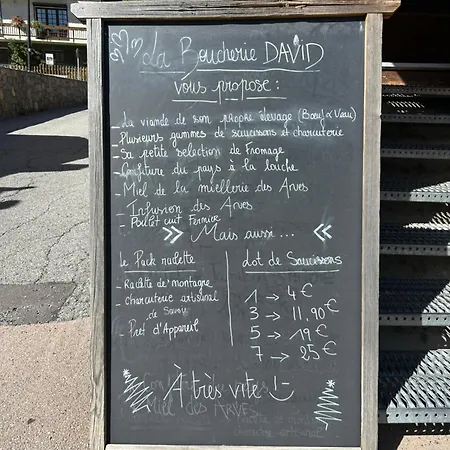 La Boucherie DAVID
vous propose :
- La viande de son propre élevage (Bœuf & Veau)
- Plusieurs gammes de saucissons et charcuterie
- Sa petite selection de Fromage
- Confiture du pays à la
- Miel de la miellerie des Arves
- Infusion des Arves
- Poulet cuit Fermier
>> Mais aussi... <<
le Pack raclette
- Raclette de montagne
- charcuterie artisanal
de Savoie
- Pret d'Appareil
Lot de Saucissons
1 → 4€
3 → 11,90€
5 → 19€
7 → 25€
À très vite :-)
Miel des ARVES